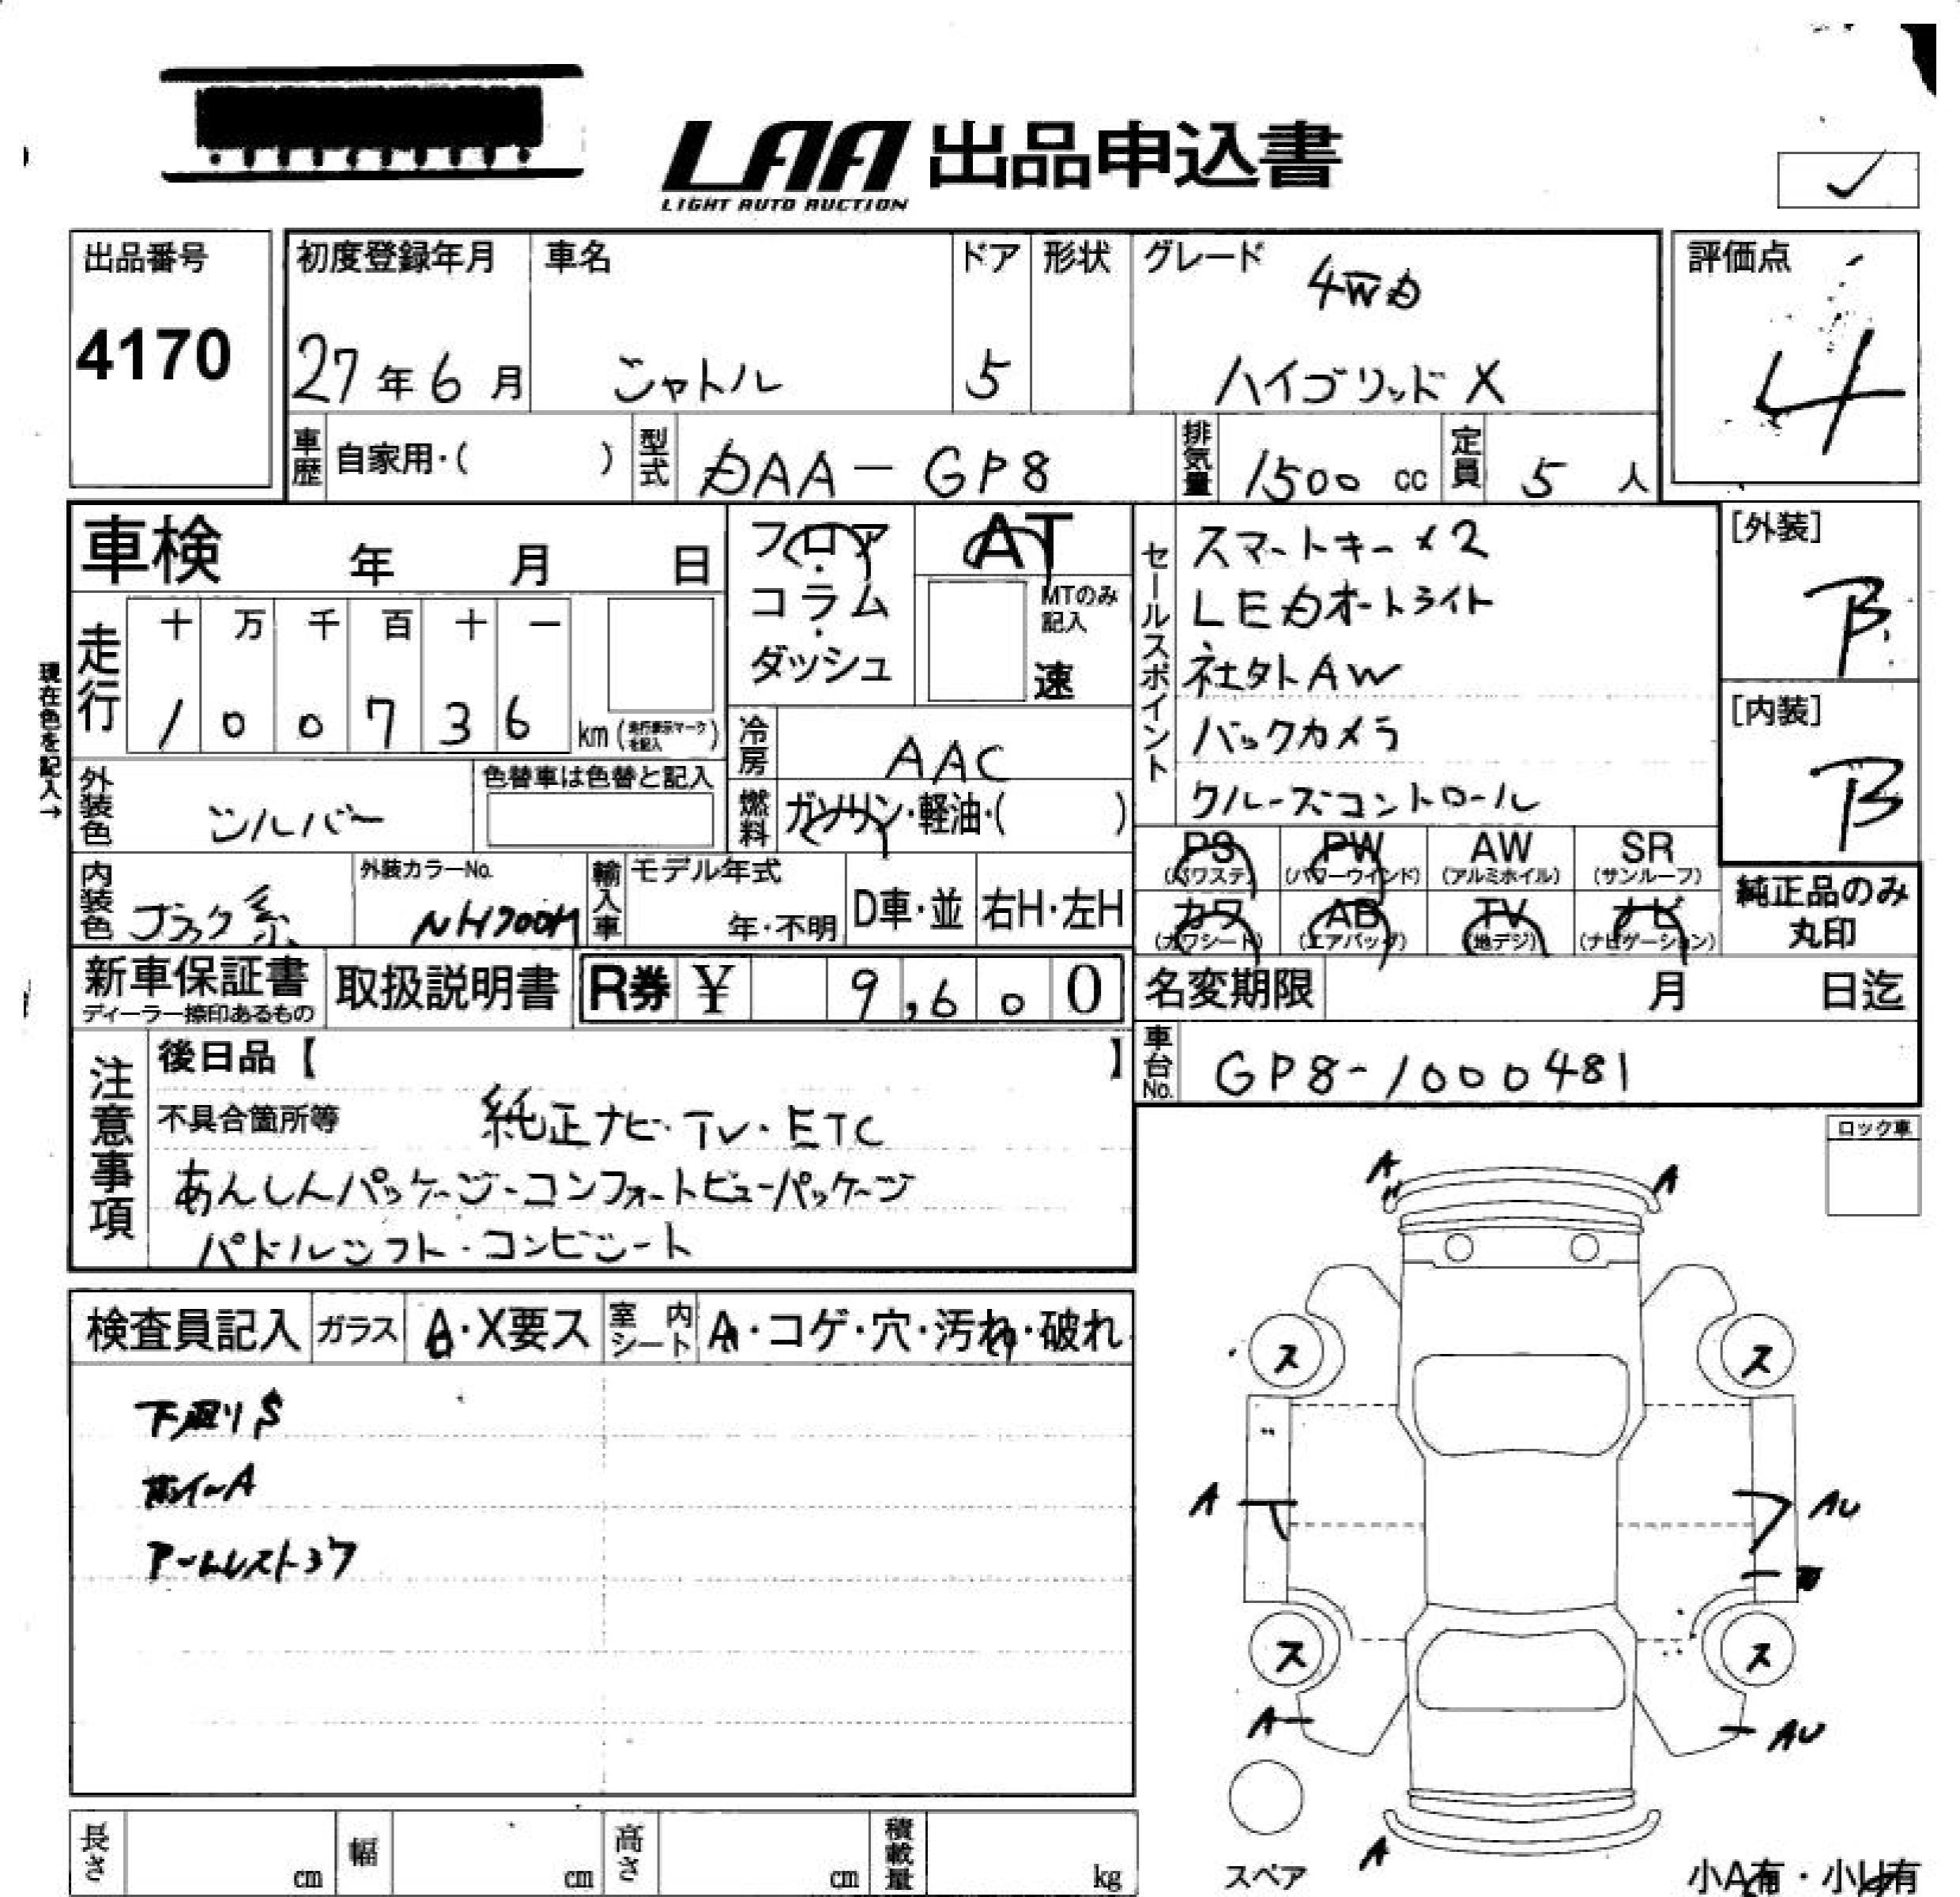 LAA 出品申込書
LIGHT AUTO AUCTION
出品番号 初度登録年月 車名 ドア 形状 グレード 評価点
4WD
4170 27年6月 シャトル 5 ハイブリッド X 4
車歴 自家用・( ) 型式 DAA-GP8 排気量 1500 cc 定員 5 人
車検 年 月 日
フロア・コラム・ダッシュ
AT
MTのみ記入
速
現在色を記入→
走行 十 万 千 百 十 一
1 0 0 7 3 6 km (走行表示マークを記入)
冷房 AAC
外装色 シルバー 色替車は色替と記入
燃料 ガソリン・軽油・( )
内装色 ブラック系 外装カラーNo. NH700M
輸入車 モデル年式 年・不明 D車・並 右H・左H
セールスポイント
スマートキー×2
LEDオートライト
社外AW
バックカメラ
クルーズコントロール
[外装] B
[内装] B
PS (パワステ) PW (パワーウインド) AW (アルミホイル) SR (サンルーフ)
カワ (カワシート) AB (エアバッグ) TV (地デジ) ナビ (ナビゲーション)
純正品のみ丸印
新車保証書 ディーラー捺印あるもの 取扱説明書 R券 ¥ 9,600
名変期限 月 日迄
車台No. GP8-1000481
注意事項
後日品【 】
不具合箇所等 純正ナビ・TV・ETC
あんしんパッケージ・コンフォートビューパッケージ
パドルシフト・コンビシート
ロック車
検査員記入 ガラス A・X要ス 室内シート A・コゲ・穴・汚れ・破れ
下廻りS
ホイールA
アームレストコワ
A A
ス ス
A AU
ス ス
A AU
A
スペア
小A有・小U有
長さ cm 幅 cm 高さ cm 積載量 kg